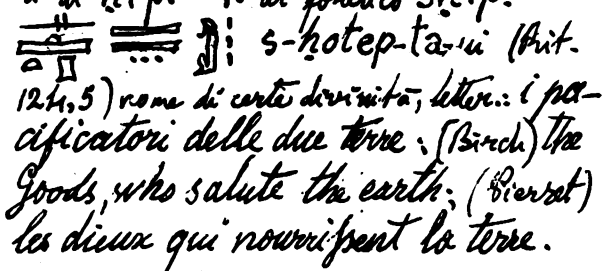 s-hotep-ta-ui (Rit.
124,5) nome di certe divinità, letter.: i pa-
cificatori delle due terre; (Birch) the
Goods, who salute the earth; (Pierret)
les dieux qui nourrissent la terre.